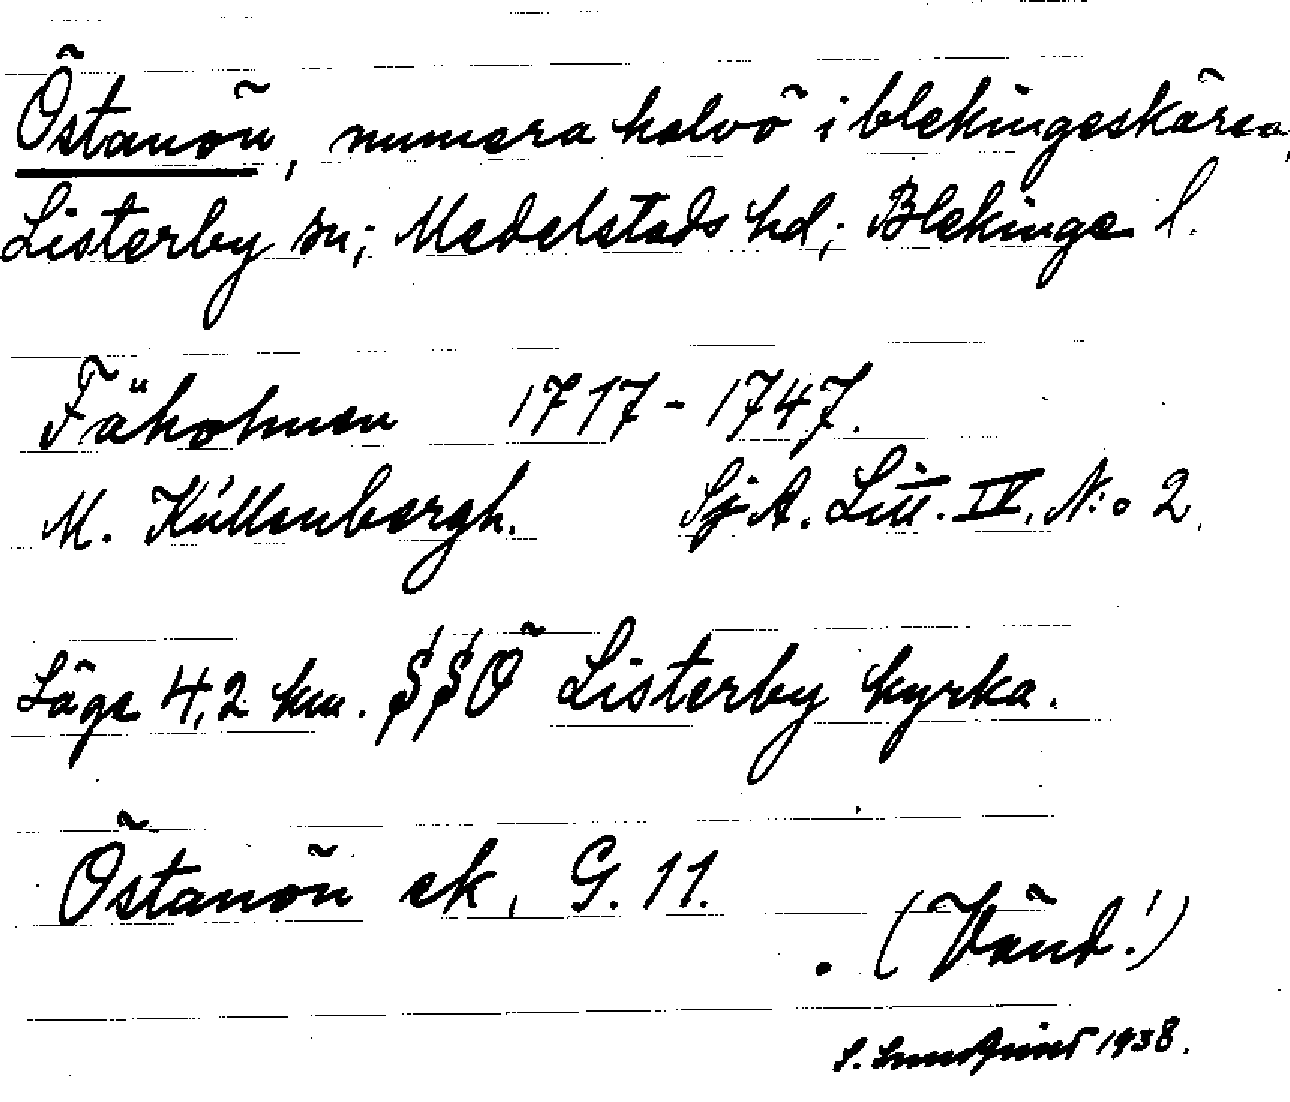 Östanön, numera halvö i blekingeskären,
Listerby sn; Medelstads hd; Blekinge l.
Fäholmen 1717-1747.
M. Küllenbergh. Sj.A. Litt. IV. N:o 2.
Läge 4,2 km. SSÖ Listerby kyrka.
Östanön ek, G. 11.
(Vänd!)
S. 1938.